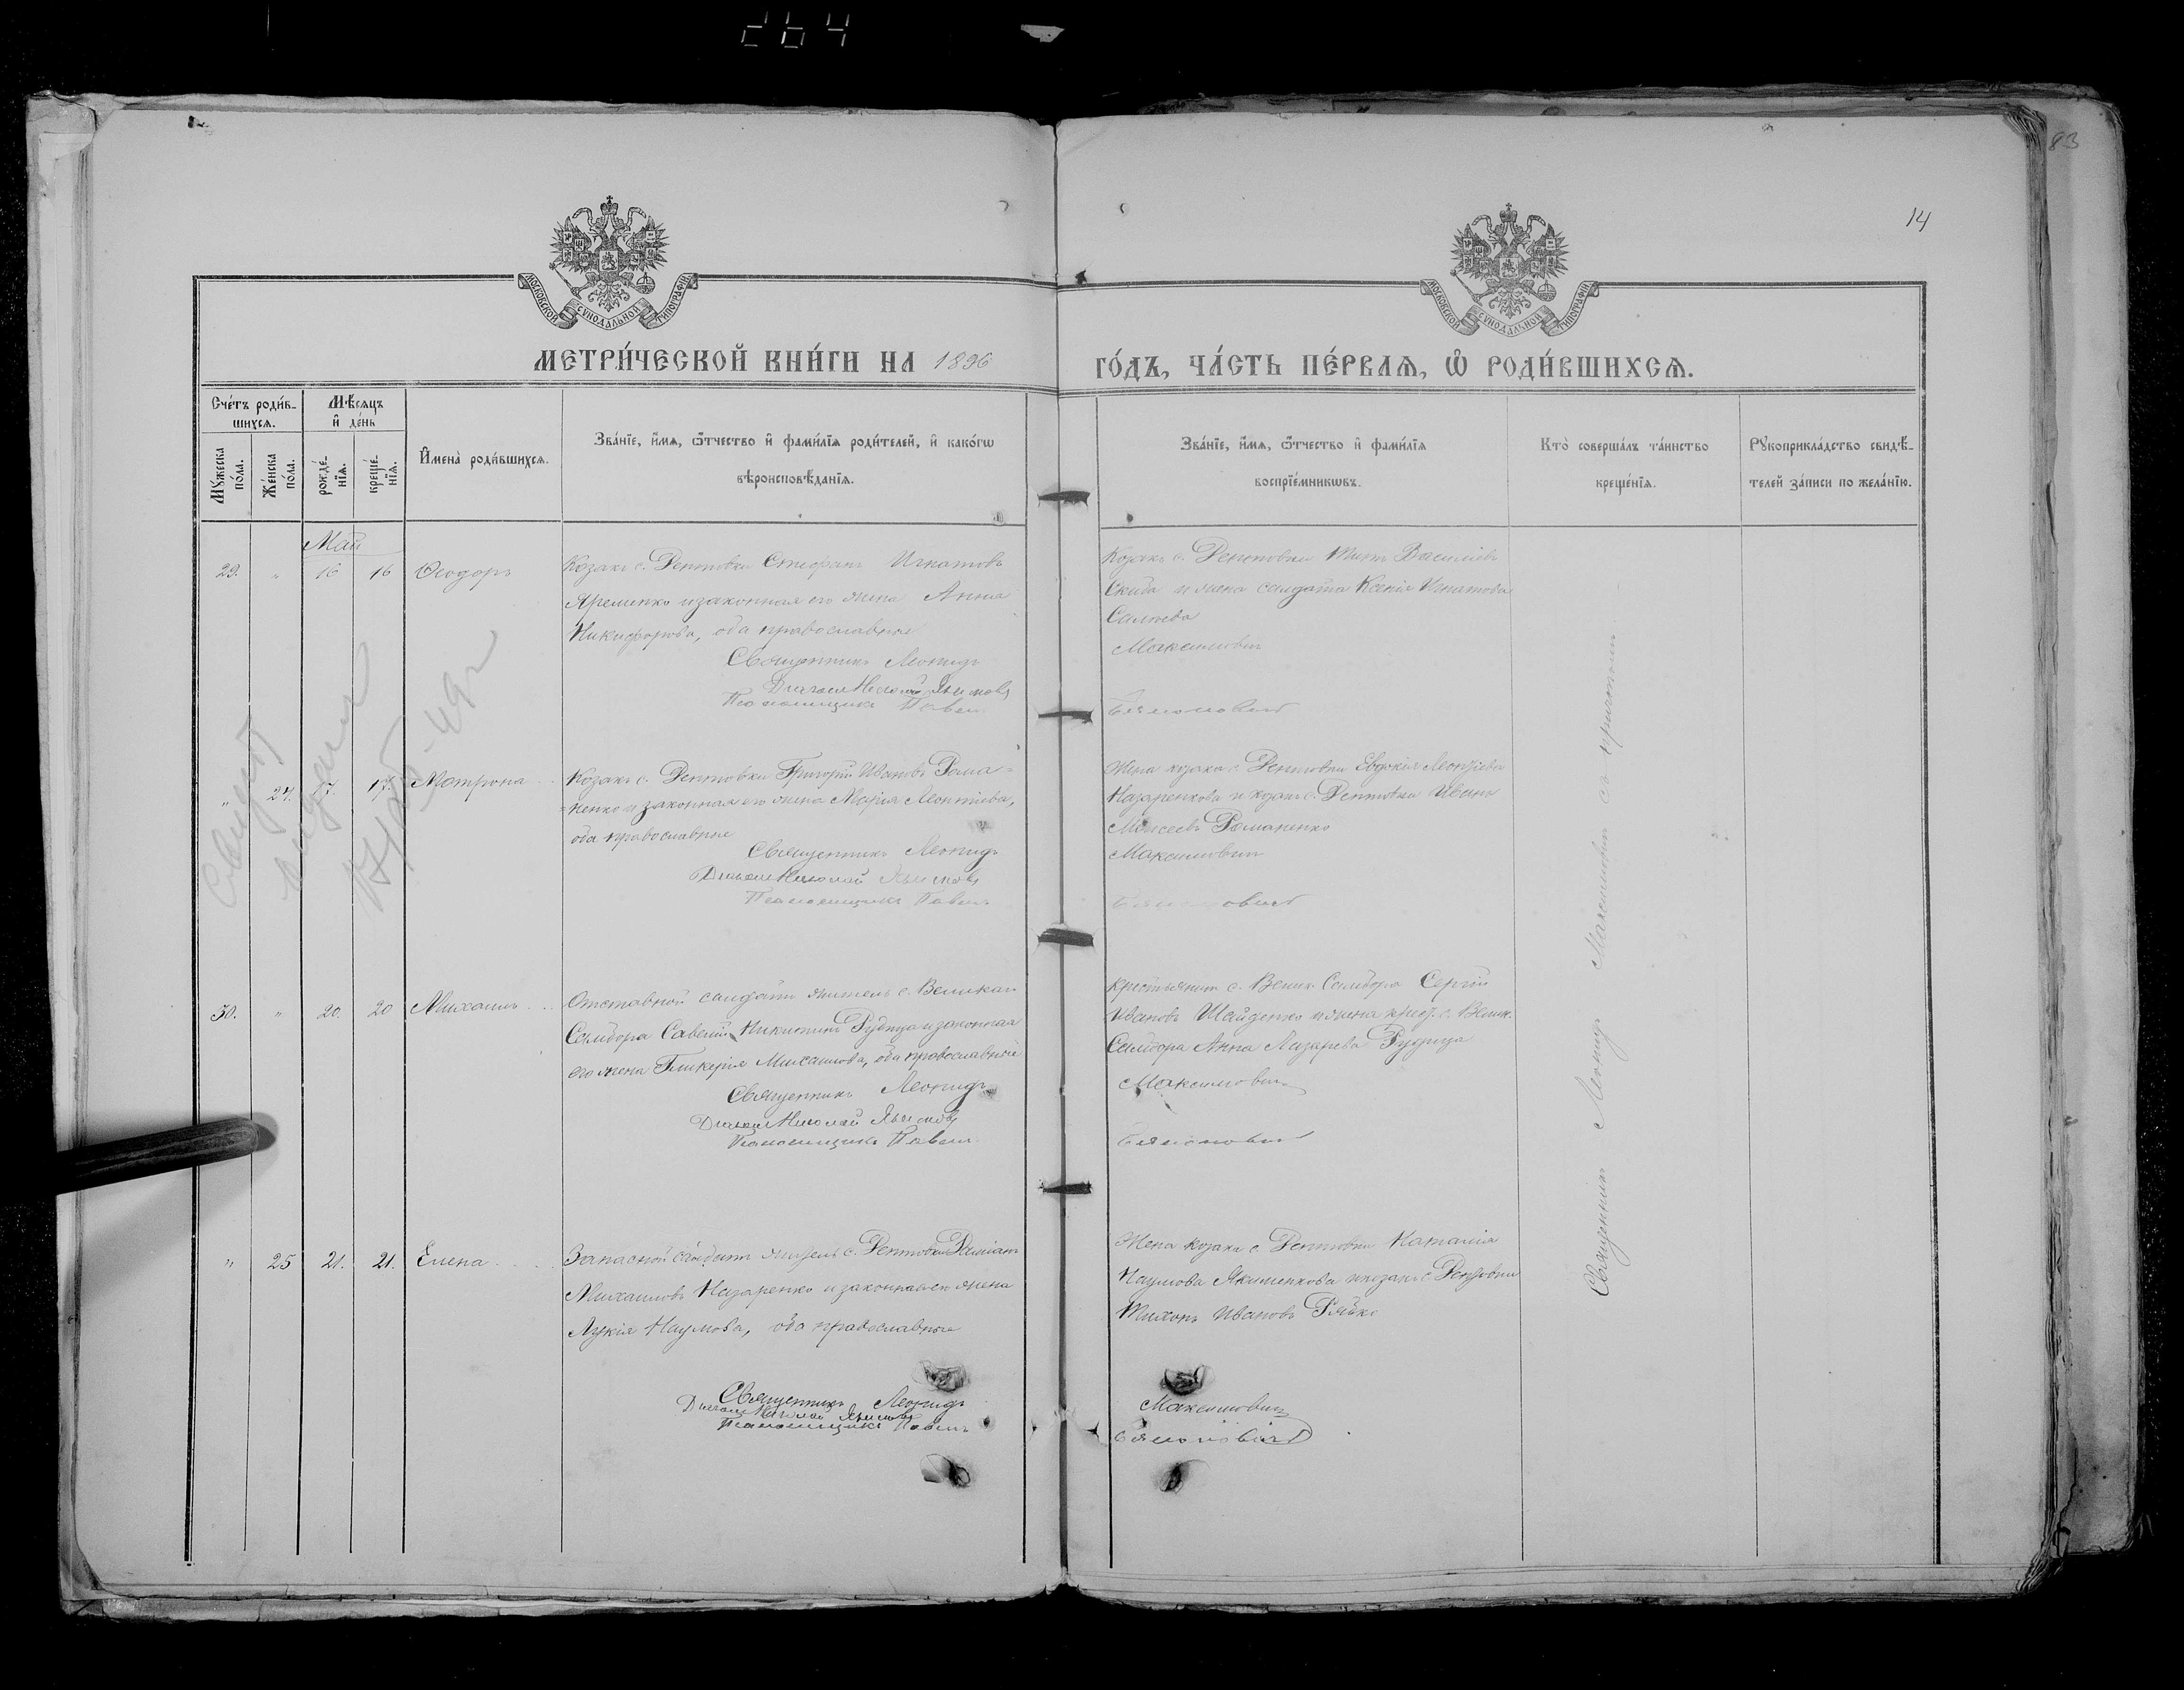 264
83
14
МОСКОВСКОЙ СѴНОДАЛЬНОЙ ТИПОГРАФІИ
МОСКОВСКОЙ СѴНОДАЛЬНОЙ ТИПОГРАФІИ
МЕТРИ́ЧЕСКОЙ КНИ́ГИ НА 1896 ГО́ДЪ, ЧА́СТЬ ПЕ́РВАѦ, Ѽ РОДИ́ВШИХСѦ.
Сче́тъ роди́в-
шихсѧ.
Мѣ́сѧцъ
и҆ де́нь
Мꙋ́жеска
по́ла.
Же́нска
по́ла.
рожде́-
нїѧ.
креще́-
нїѧ.
И҆мена̀ роди́вшихсѧ.
Зва́нїе, и҆́мѧ, ѻ҆́тчество и҆ фами́лїѧ роди́телей, и҆ како́гѡ
вѣроисповѣ́данїѧ.
Зва́нїе, и҆́мѧ, ѻ҆́тчество и҆ фами́лїѧ
воспрїе́мникѡвъ.
Кто̀ соверша́лъ та́инство
креще́нїѧ.
Рꙋкоприкла́дство свидѣ́-
телей за́писи по жела́нїю.
Май
29. " 16 16 Ѳеодоръ
Козакъ с. Рептовки Стефанъ Игнатовъ
Яременко и законная его жена Анна
Никифорова, оба православные
Священникъ Леонидъ
Діаконъ Николай
Псаломщикъ Павелъ
Козакъ с. Рептовки Титъ Василіевъ
Скиба и жена солдата Ксенія Игнатова
Максимовичъ
" 24. 17. 17. Матрона
Козакъ с. Рептовки Григорій Ивановъ Рома-
ненко и законная его жена Марія Леонтіева,
оба православные
Священникъ Леонидъ
Діаконъ Николай
Псаломщикъ Павелъ
Жена козака с. Рептовки Евдокія Леонтіева
Назаренкова и козакъ с. Рептовки Иванъ
Моисеевъ Романенко
Максимовичъ
30. " 20. 20 Михаилъ
Отставной солдатъ житель с. Великаго
Самбора Савелій Никитинъ Рудица и законная
его жена Гликерія Михаилова, оба православные
Священникъ Леонидъ
Діаконъ Николай
Псаломщикъ Павелъ
Крестьянинъ с. Велик. Самбора Сергій
Ивановъ Шайденко и жена крест. с. Велик.
Самбора Анна Лазарева Рудица
Максимовичъ
" 25 21. 21. Елена
Запасной солдатъ житель с. Рептовки Даміанъ
Михаиловъ Назаренко и законная его жена
Лукія Наумова, оба православные
Священникъ Леонидъ
Діаконъ Николай
Псаломщикъ Павелъ
Жена козака с. Рептовки Наталія
Наумова Якименкова и козакъ с. Рептовки
Тихонъ Ивановъ Рябко
Максимовичъ
Священникъ Леонидъ Максимовичъ съ причтомъ